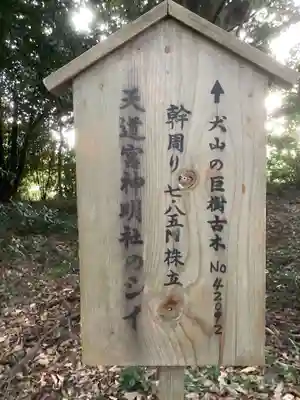 ↑犬山の巨樹古木 No 42092
幹周り 七.八五m 株立
天道宮神明社のシイ